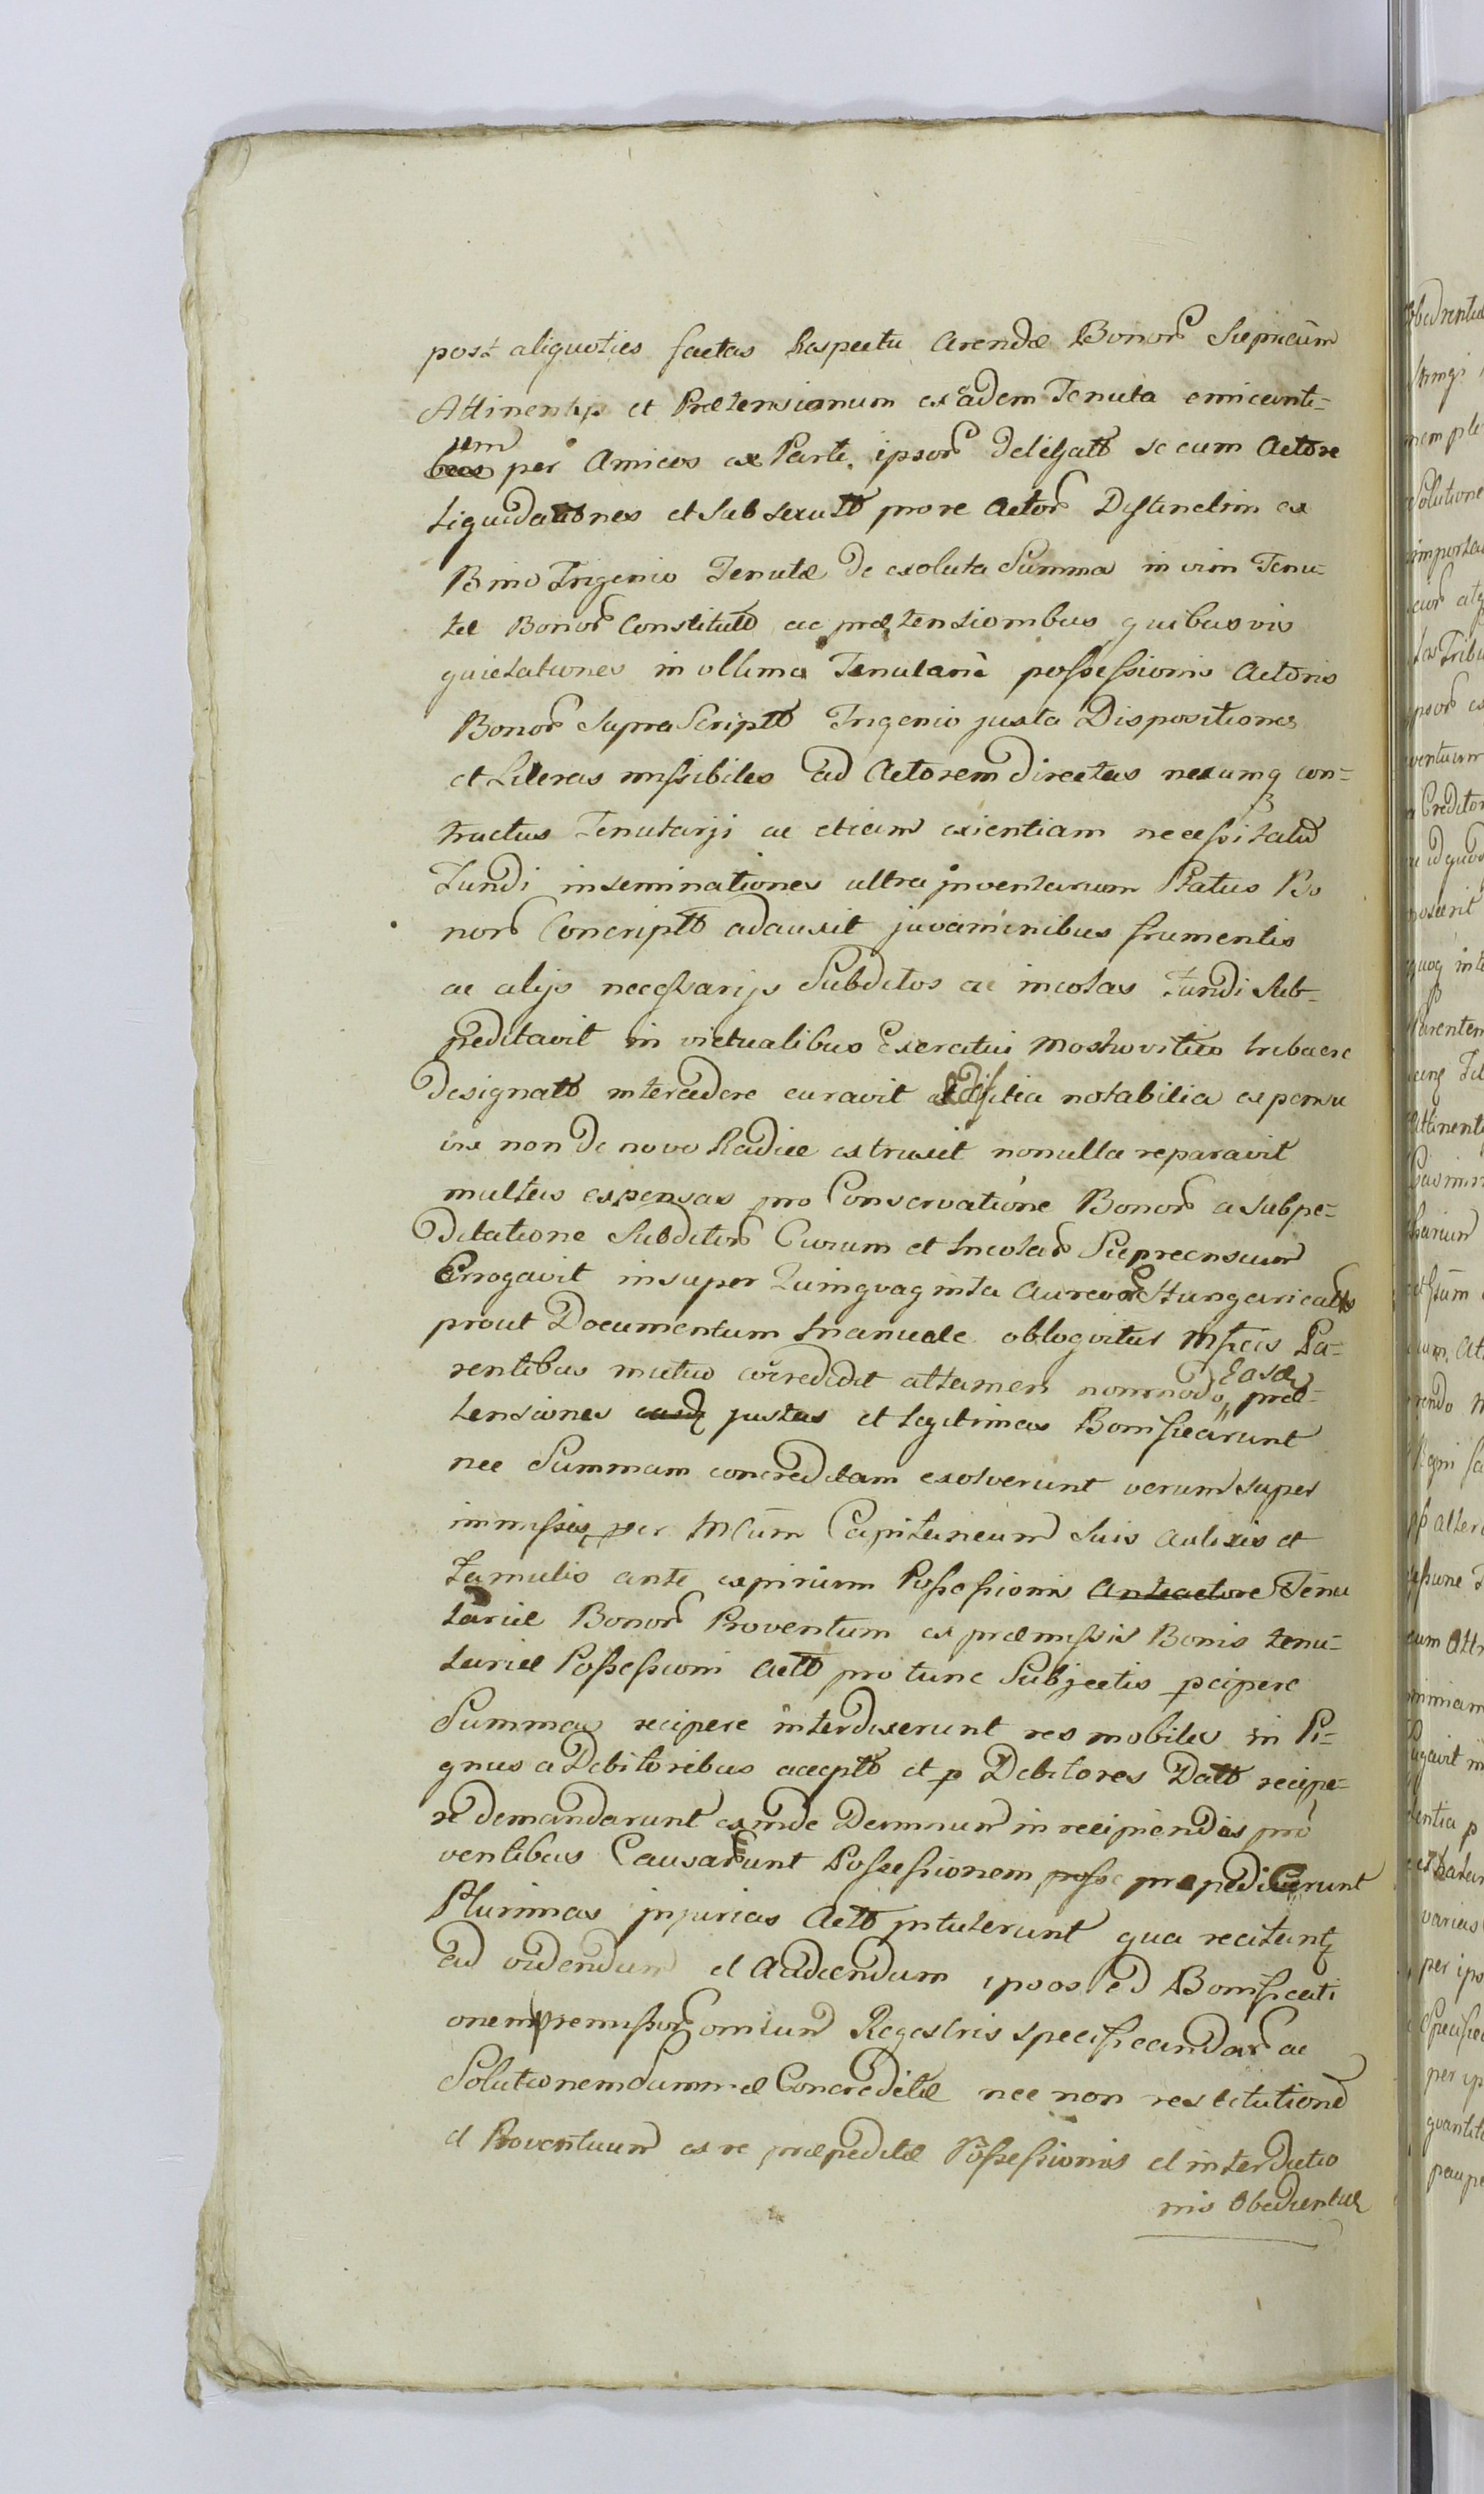 post aliquoties factas Respectu Arendæ Bonor Siepricūm
Attinentys et Prætensionum ex eadem Tenuta emicanti=
um per Amicos ex Parte ipsor delegatt secum Actore
Liquidationes et subsecutt pro re Actor Distinctim ex
Bino Trigenio Tenutæ de exoluta Summa in vim Tenu=
tæ Bonor Constitutt ac prætensionibus quibusvis
quietationes in ultima Tenutariæ possessionis Actoris
Bonor supra Scriptt Trigenio juxta Dispositiones
et Literas missibiles ad Actorem directas nexumq con=
tractus Tenutarji ac etiam exientiam necessitatū
Fundi inseminationes ultra jnventarium Status Bo
nor Concriptt adauxit juvaminibus frumentis
ac alijs necessarijs Subditos ac incolas Fundi sub=
peditavit in victualibus Exercitui Moshovitico tribuere
designatt intercedere curavit Ædificia notabilia expensu
ire non de novo Radice extruxit nonulla reparavit
multas expensas pro Conservatione Bonor a subpe=
ditatione Subditor Curum et Incolar Siepricensium
Errogavit insuper Quinquaginta Aureor Hungaricalts
prout Documentum manuale obloqvitur Mficis Pa=
rentibus mutuo concredidit attamen nonmodo Easdē præ=
tensiones easdq justas et legitimas Bonificarunt
nec Summam concreditam exolverunt verum super
immissis per Mcūm Capitaneum suis aulicis et
Famulis ante expirium Possessionis Anteactore Tenu
tariæ Bonor Proventum ex præmissis Bonis tenu=
tariæ Possessioni Actt pro tunc Subjectis pcipere
Summas recipere interdixerunt res mobiles in Pi=
gnus a Debitoribus acceptt et p Debitores Datt recipe=
re demandarunt exinde Damnum in recipiendis pro
ventibus Causarunt Possessionem posse præpedierunt
Plurimas jnjurias Actt jntulerunt qua recitantq
ad videndum et Audiendum ipsos ad Bonificati
onem premissor omium Regestris specificandar ac
Solutionem Summæ Concreditæ nec non restitutionē
et Proventuum ex re præpeditæ Possessionis et interdictio
nis Obedientiæ